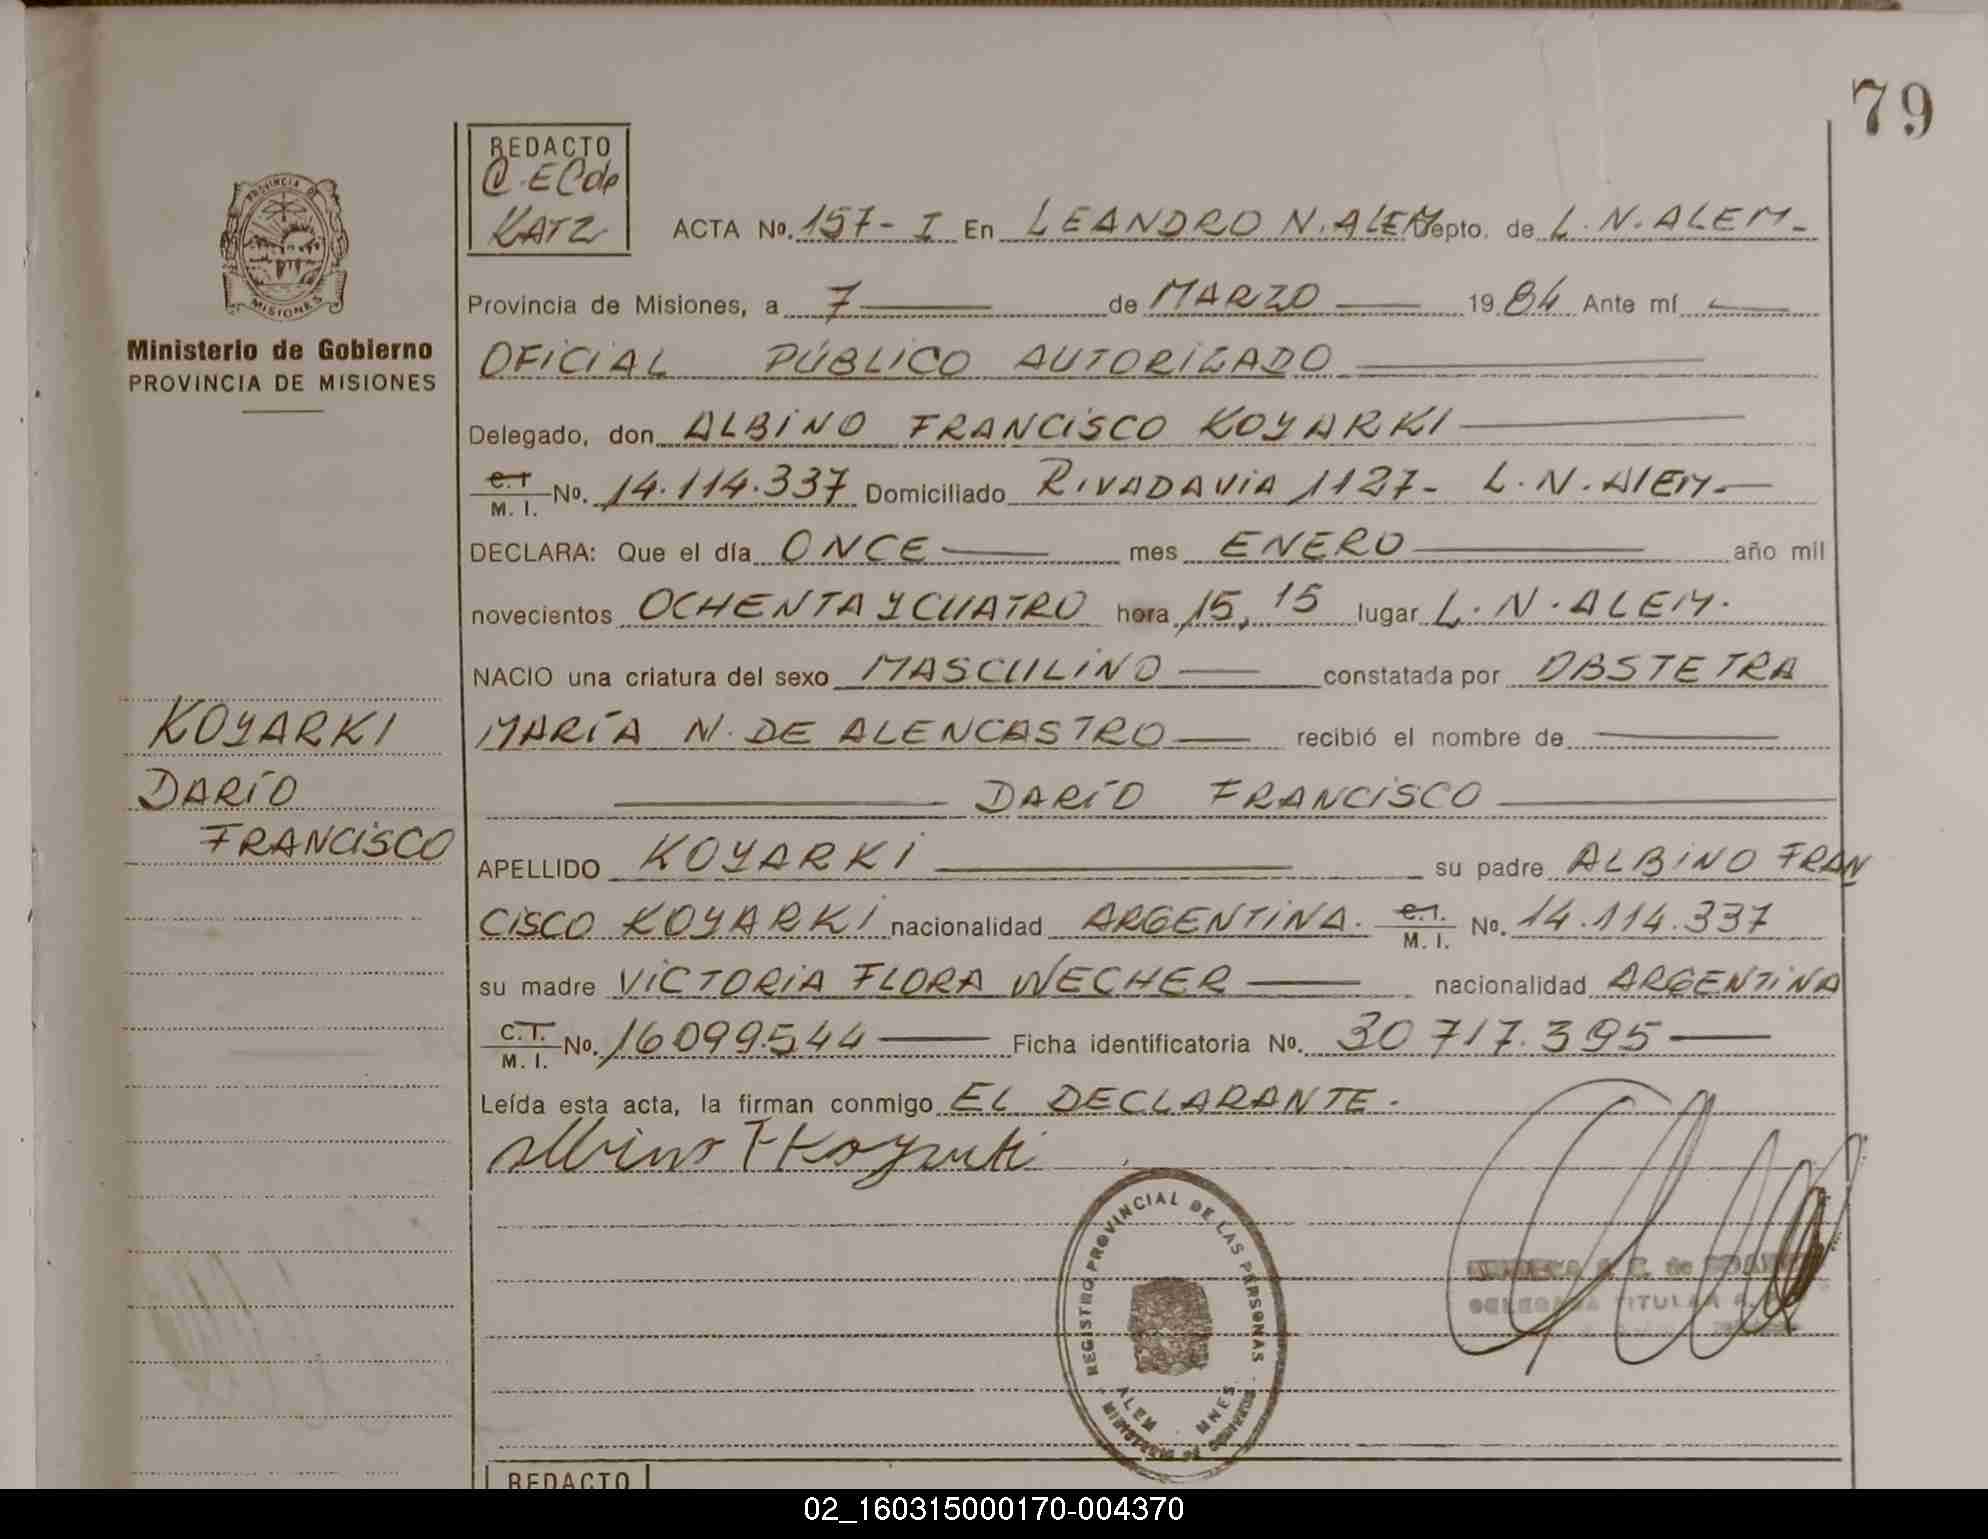 79
REDACTO
C. E C de
KATZ
ACTA No. 157 - I En LEANDRO N. ALEM Depto. de L. N. ALEM -
PROVINCIA DE
MISIONES
Provincia de Misiones, a 7 de MARZO 1984 Ante mí
Ministerio de Gobierno
PROVINCIA DE MISIONES
OFICIAL PÚBLICO AUTORIZADO
Delegado, don ALBINO FRANCISCO KOYARKI
C.I M. I. No. 14.114.337 Domiciliado RIVADAVIA 1127- L. N. AlEM.
DECLARA: Que el día ONCE mes ENERO año mil
novecientos OCHENTA Y CUATRO hora 15, 15 lugar L. N. ALEM.
NACIO una criatura del sexo MASCULINO constatada por OBSTETRA
KOYARKI
DARÍO
FRANCISCO
MARÍA N. DE ALENCASTRO recibió el nombre de
DARÍO FRANCISCO
APELLIDO KOYARKI su padre ALBINO FRAN
CISCO KOYARKI nacionalidad ARGENTINA. C.I. M. I. No. 14.114.337
su madre VICTORIA FLORA WECHER nacionalidad ARGENTINA
C.T. M. I. No. 16099.544 Ficha identificatoria No. 30717.395
Leída esta acta, la firman conmigo EL DECLARANTE.
Albino F Koyarki
REGISTRO PROVINCIAL DE LAS PERSONAS
ALEM MNES
TITULAR
REDACTO
02_160315000170-004370